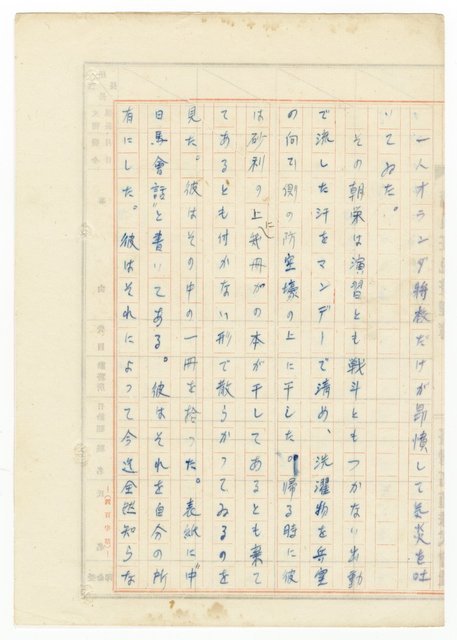 一人オランダ将校だけが昂憤して気炎を吐
いてゐた。
その朝栄は演習とも戦斗ともつかない出動
で流した汗をマンデーで清め、洗濯物を兵室
の向て側の防空壕の上に干した。帰る時に彼
は砂利の上に幾冊かの本が干してあるとも棄て
てあるとも付かない形で散らかつてゐるのを
見た。彼はその中の一冊を拾つた。表紙に“中
日馬會話”と書いてある。彼はそれを自分の所
有にした。彼はそれによつて今迄全然知らな